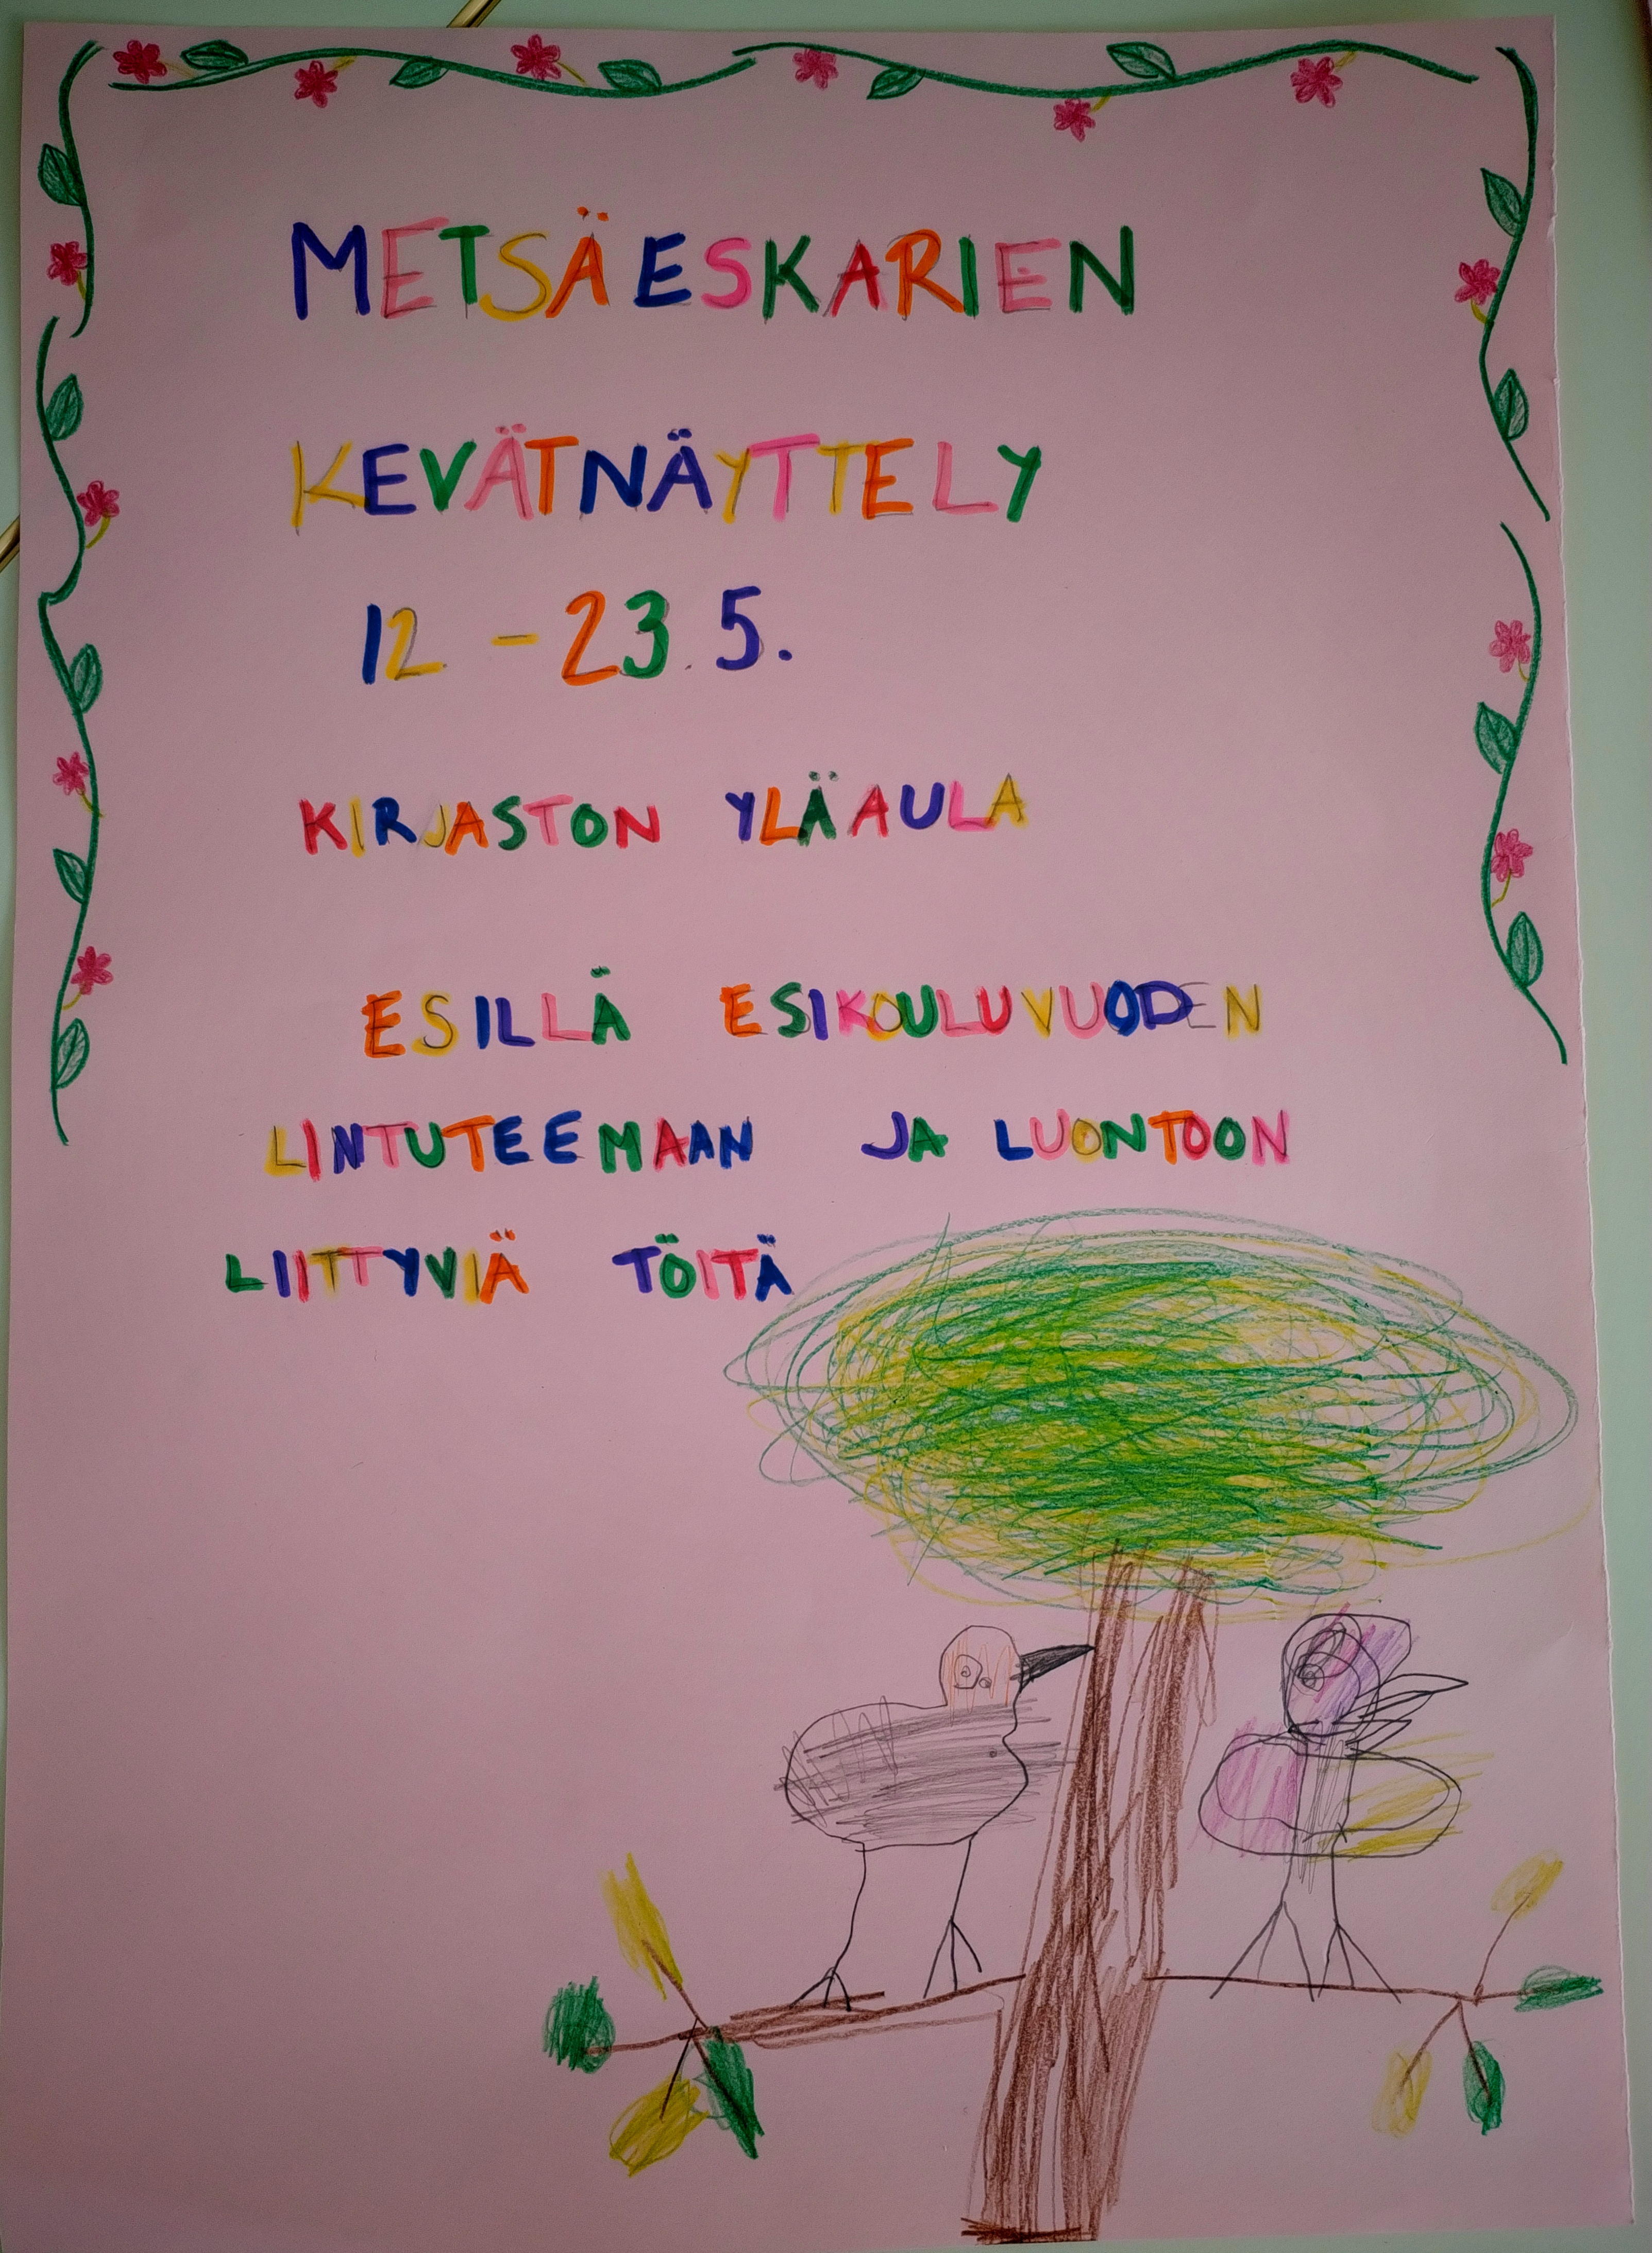 METSÄESKARIEN
KEVÄTNÄYTTELY
12. - 23.5.
KIRJASTON YLÄAULA
ESILLÄ ESIKOULUVUODEN
LINTUTEEMAAN JA LUONTOON
LIITTYVIÄ TÖITÄ